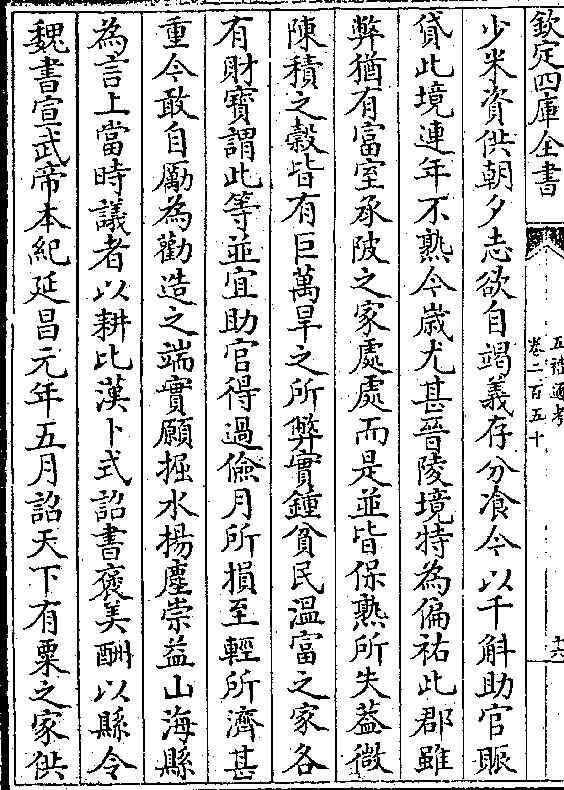 欽定四庫全書
五禮通考
卷二百五十
十六
少米資供朝夕志欲自竭義存分飡今以千斛助官賑
貸此境連年不熟今歳尤甚晉陵境特為偏祐此郡雖
弊猶有富室承陂之家處處而是並皆保熟所失葢微
陳積之穀皆有巨萬旱之所弊實鍾貧民溫富之家各
有財寶謂此等並宜助官得過儉月所損至輕所濟甚
重今敢自勵為勸造之端實願掘水揚塵崇益山海縣
為言上當時議者以耕比漢卜式詔書襃美酬以縣令
魏書宣武帝本紀延昌元年五月詔天下有粟之家供